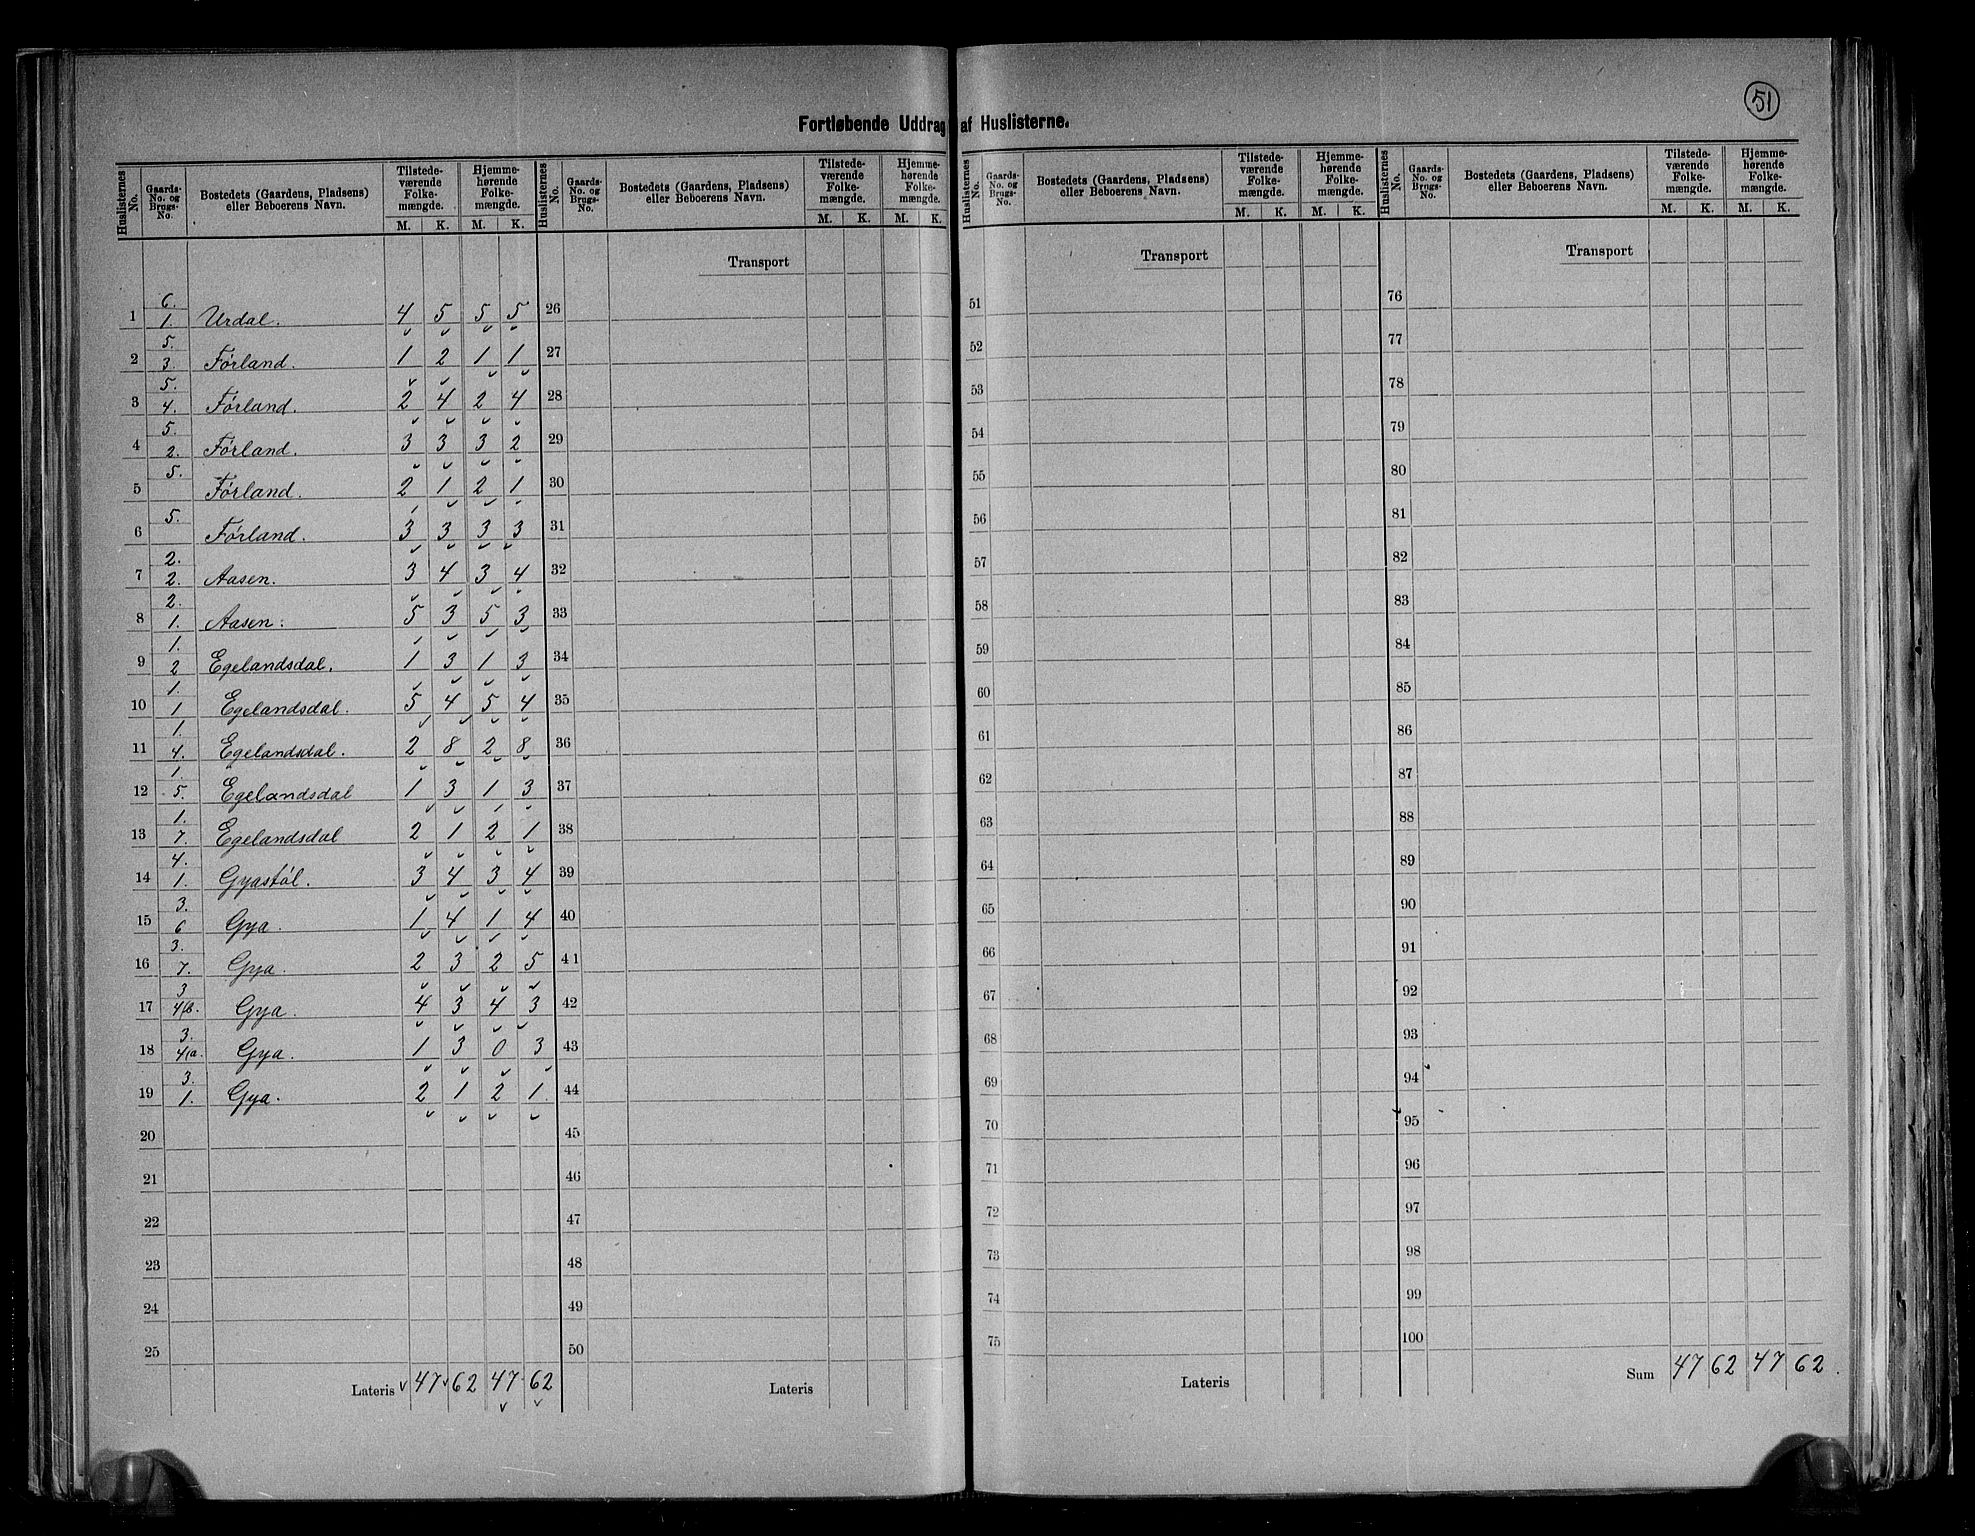 51
Fortløbende Uddrag af Huslisterne.
Huslisternes No. Gaards-No. og Brugs-No. Bostedets (Gaardens, Pladsens) eller Beboerens Navn. Tilstede-værende Folke-mængde. M. K. Hjemme-hørende Folke-mængde. M. K.
Huslisternes No. Gaards-No. og Brugs-No. Bostedets (Gaardens, Pladsens) eller Beboerens Navn. Tilstede-værende Folke-mængde. M. K. Hjemme-hørende Folke-mængde. M. K.
Huslisternes No. Gaards-No. og Brugs-No. Bostedets (Gaardens, Pladsens) eller Beboerens Navn. Tilstede-værende Folke-mængde. M. K. Hjemme-hørende Folke-mængde. M. K.
Huslisternes No. Gaards-No. og Brugs-No. Bostedets (Gaardens, Pladsens) eller Beboerens Navn. Tilstede-værende Folke-mængde. M. K. Hjemme-hørende Folke-mængde. M. K.
Transport Transport Transport
1 6. 1. Urdal. 4 5 5 5 26 51 76
2 5. 3. Førland. 1 2 1 1 27 52 77
3 5. 4. Førland. 2 4 2 4 28 53 78
4 5. 2. Førland. 3 3 3 2 29 54 79
5 5. Førland. 2 1 2 1 30 55 80
6 5. Førland. 3 3 3 3 31 56 81
7 2. 2. Aasen. 3 4 3 4 32 57 82
8 2. 1. Aasen. 5 3 5 3 33 58 83
9 1. 2 Egelandsdal. 1 3 1 3 34 59 84
10 1. 1 Egelandsdal. 5 4 5 4 35 60 85
11 1. 4. Egelandsdal. 2 8 2 8 36 61 86
12 1. 5. Egelandsdal 1 3 1 3 37 62 87
13 1. 7. Egelandsdal 2 1 2 1 38 63 88
14 4. 1. Gyastøl. 3 4 3 4 39 64 89
15 3. 6 Gya. 1 4 1 4 40 65 90
16 3. 7. Gya. 2 3 2 5 41 66 91
17 3 4/B. Gya. 4 3 4 3 42 67 92
18 3. 4/a. Gya. 1 3 0 3 43 68 93
19 3. 1. Gya. 2 1 2 1. 44 69 94
20 45 70 95
21 46 71 96
22 47 72 97
23 48 73 98
24 49 74 99
25 50 75 100
Lateris 47 62 47 62 Lateris Lateris Sum 47 62 47 62.